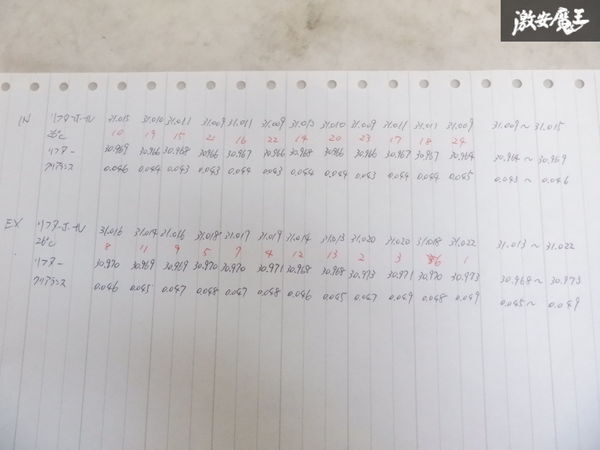 激安魔王
IN リフターホール 31.013 31.010 31.011 31.009 31.011 31.009 31.013 31.010 31.009 31.011 31.011 31.009 31.009～31.015
10 19 15 21 16 22 14 20 23 17 18 24
リフター 30.969 30.966 30.968 30.966 30.967 30.966 30.968 30.966 30.966 30.967 30.967 30.964 30.964～30.969
クリアランス 0.046 0.044 0.043 0.043 0.044 0.043 0.044 0.044 0.043 0.044 0.044 0.045 0.043～0.046
EX リフターホール 31.016 31.014 31.016 31.018 31.017 31.019 31.014 31.013 31.020 31.020 31.018 31.022 31.013～31.022
8 11 9 5 7 4 12 13 2 3 6 1
リフター 30.970 30.969 30.969 30.970 30.970 30.971 30.968 30.968 30.973 30.971 30.970 30.973 30.968～30.973
クリアランス 0.046 0.045 0.047 0.048 0.047 0.048 0.046 0.045 0.047 0.049 0.048 0.049 0.045～0.049